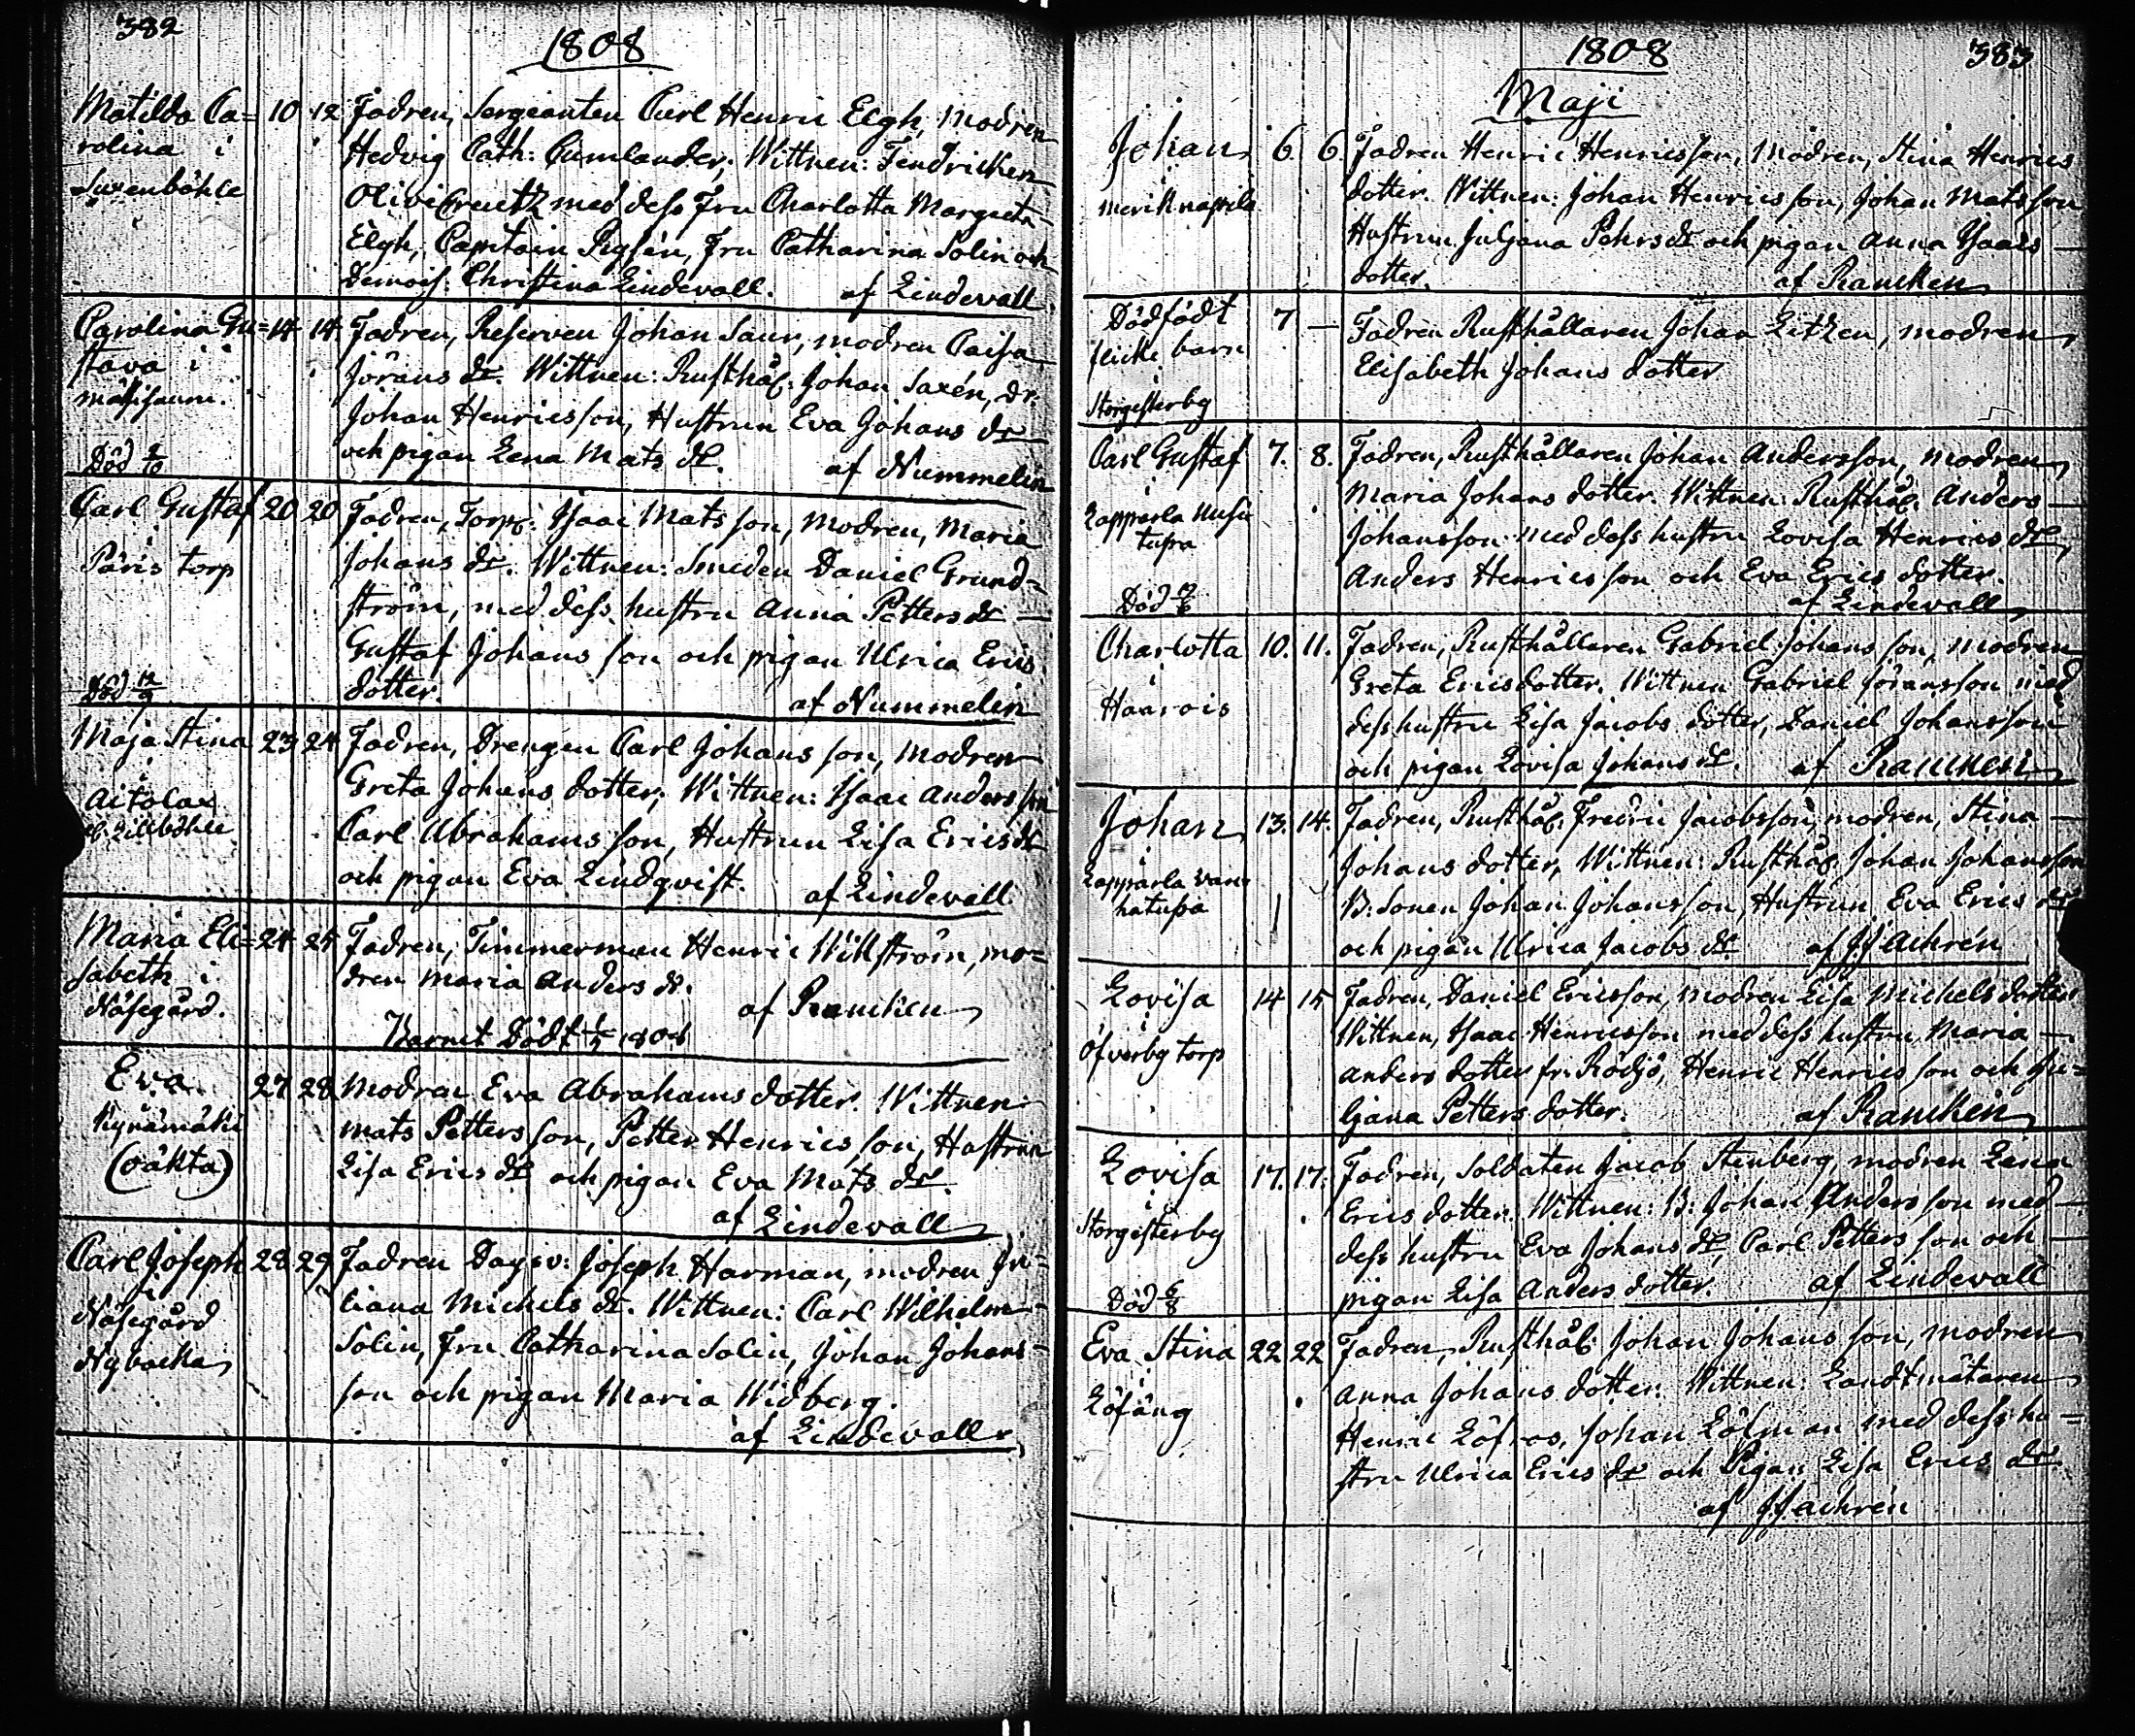 382
1808
Matilda Ca= 10 12 Fadren, Sergeanten Carl Henric Elgh, Modren
rolina i Hedvig Cath: Cumlander; Wittnen: Fendricken
Olivecreutz med dess Fru Charlotta Margreta
Elgh, Capitain Fru Catharina Solin och
Demois: Christina Lindevall. af Lindevall
Carolina Gu= 14 14 Fadren, Reserven Johan Saur, modren Caisa
stava i Jörans dr. Wittnen: Rusthål: Johan Saxén, dr:
Johan Henricsson, Hustrun Eva Johans dr
och pigan Lena Mats dr. af Nummelin
Död 9/10
Carl Gustaf 20 20 Fadren, Torp: Isaac Matsson, Modren, Maria
i Johans dr. Wittnen: Smeden Daniel Grund=
Päris torp ström, med dess hustru Anna Petters dr
Gustaf Johansson och pigan Ulrica Erics
dotter. af Nummelin
Död 12/9
Maja Stina 23 24 Fadren, Drengen Carl Johansson, modren
i Greta Johans dotter; Wittnen: Isaac Andersson
Aitolax Carl Abrahamsson, Hustrun Lisa Erics dr
Lillböhle och pigan Eva Lindqvist. af Lindevall
Maria Eli= 24 25 Fadren, Timmerman Henric Willström, mo=
sabeth i dren Maria Anders dr.
Näsegård. af Rancken
Barnet Dödt 1/5 1808
Eva 27 28 Modren Eva Abrahams dotter. Wittnen
Kynämäki Mats Pettersson, Petter Henricsson, Hustrun
(oäkta) Lisa Erics dr och pigan Eva Mats dr.
af Lindevall
Carl Joseph 28 29 Fadren Dagsv: Joseph Harman, modren Ju=
i liana Michels dr. Wittnen: Carl Wilhelm
Näsegård Solin, Fru Catharina Solin, Johan Johans=
Nybacka son och pigan Maria Widberg.
af Lindevall
1808 383
Maji
Johan 6. 6. Fadren Henric Henricsson, Modren, Stina Henrics
i dotter. Wittnen: Johan Henricsson, Johan Matsson
Hustrun Juljana Pehrs dr och pigan Anna Isaacs
dotter. af Rancken
Dödfödt 7 — Fadren Rusthållaren Johan Litzen, modren
flicke barn Elisabeth Johans dotter
i
Storgesterby
Carl Gustaf 7. 8. Fadren, Rusthållaren Johan Andersson, modren
i Maria Johans dotter. Wittnen: Rusthål: Anders
Lapparla Uusi Johansson med dess hustru Lovisa Henrics dr,
tupa Anders Henricsson och Eva Erics dotter.
Död af Lindevall
Charlotta 10. 11. Fadren, Rusthållaren Gabriel Johansson, modren
i Greta Ericsdotter. Wittnen Gabriel Göransson med
Haarois dess hustru Lisa Jacobs dotter, Daniel Johansson
och pigan Lovisa Johans dr. af Rancken
Johan 13. 14. Fadren, Rusthål: Fredric Jacobsson, modren, Stina
i Johans dotter, Wittnen: Rusthål: Johan Johansson
Lapparla Van= B: Sonen Johan Johansson, Hustrun Eva Erics dr
hatupa och pigan Ulrica Jacobs dr. af J. J. Achrén
Lovisa 14 15 Fadren, Daniel Ericsson, modren Lisa Michels dotter
i Wittnen, Isaac Henricsson med dess hustru Maria
Öfverby torp Anders dotter fr. Rödsjö, Henric Henricsson och Ju=
ljana Petters dotter. af Rancken
Lovisa 17. 17. Fadren, Soldaten Jacob Stenberg, modren Lena
i Erics dotter. Wittnen: B: Johan Andersson med
Storgesterby dess hustru Eva Johans dr, Carl Pettersson och
Död 6/8 pigan Lisa Anders dotter. af Lindevall
Eva Stina 22 22 Fadren, Rusthål: Johan Johansson, modren
i Anna Johans dotter. Wittnen: Landtmätaren
Löfäng Henric Johan Löfman med dess hu=
stru Ulrica Erics dr och Pigan Lisa Erics dr.
af J. J. Achrén